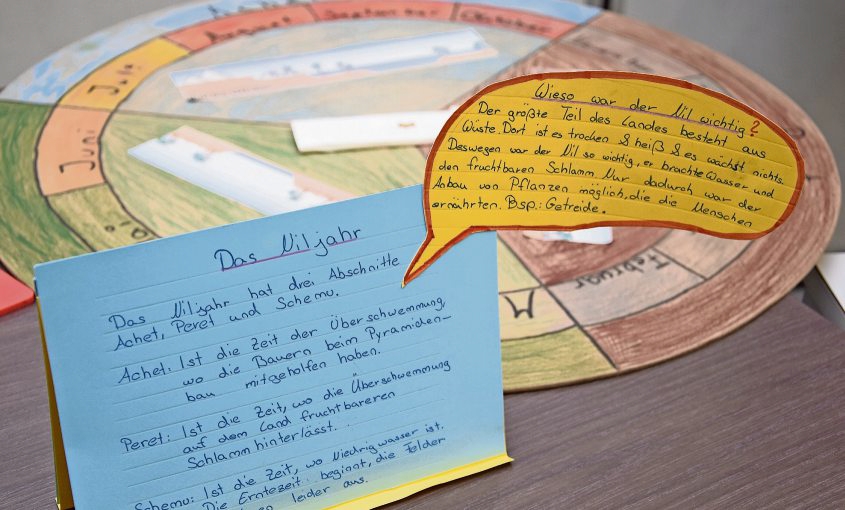 August
September
Oktober
Juli
Juni
Februar
M
Wieso war der Nil wichtig?
Der größte Teil des Landes besteht aus
Wüste. Dort ist es trocken & heiß & es wächst nichts
Deswegen war der Nil so wichtig, er brachte Wasser und
den fruchtbaren Schlamm Nur dadurch war der
Anbau von Pflanzen möglich, die die Menschen
ernährten. Bsp.: Getreide.
Das Niljahr
Das Niljahr hat drei Abschnitte
Achet, Peret und Schemu.
Achet: Ist die Zeit der Überschwemmung,
wo die Bauern beim Pyramiden-
bau mitgeholfen haben.
Peret: Ist die Zeit, wo die Überschwemmung
auf dem Land fruchtbareren
Schlamm hinterlässt.
Schemu: Ist die Zeit, wo Niedrigwasser ist.
Die Erntezeit beginnt, die Felder
leider aus.